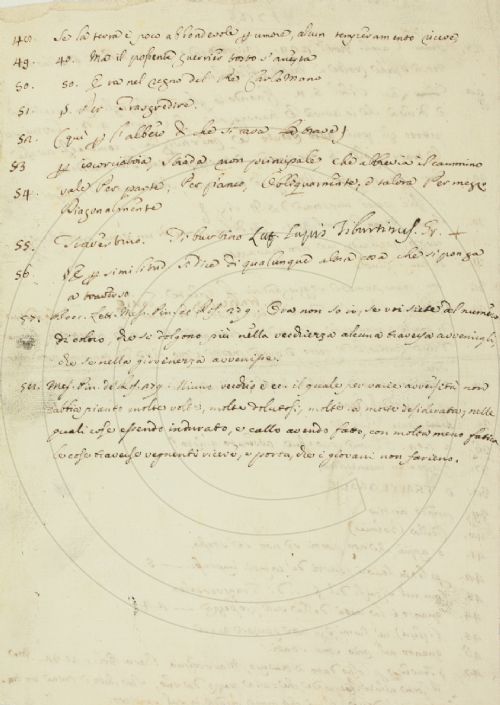 48. Se la terra è poco abbondevole p umore, alcun temperamento riceve,
49. 40. Ma il possente guerrier tosto s'aresta
50. 50. E ra nel regno del Re Carlo Mano
51. p. Per Trasgredire.
52. (qui p l'albero di che si cava
53 p iscorciatoia, strada non principale che abbrevia il cammino
54. vale Per parte, Per fianco, Obliquamente, e talora Per mezzo
Diagonalmente
55. Travertino. Tiburtino Lat. Lapis Tiburtinus. Gr. +
56. p similitud. si dice di qualunque altra cosa che si ponga
a traverso
57. Bocc. Lett. Mess. Pin. Ora non so io, se voi siete del numero
di coloro, che si dolgono più nella vecchiezza alcuna traversa avvenirgli,
che se nella giovenezza avvenisse.
58. Mess. Pin. Niuno vecchio è ec. il quale per varie avversità non
abbia pianto molte volte, molte dolutosi, molte la morte desiderata; nelle
quali cose essendo indurato, e callo avendo fatto, con molta meno fatica
le cose traverse vegnenti riceve, e porta, che i giovani non farieno.